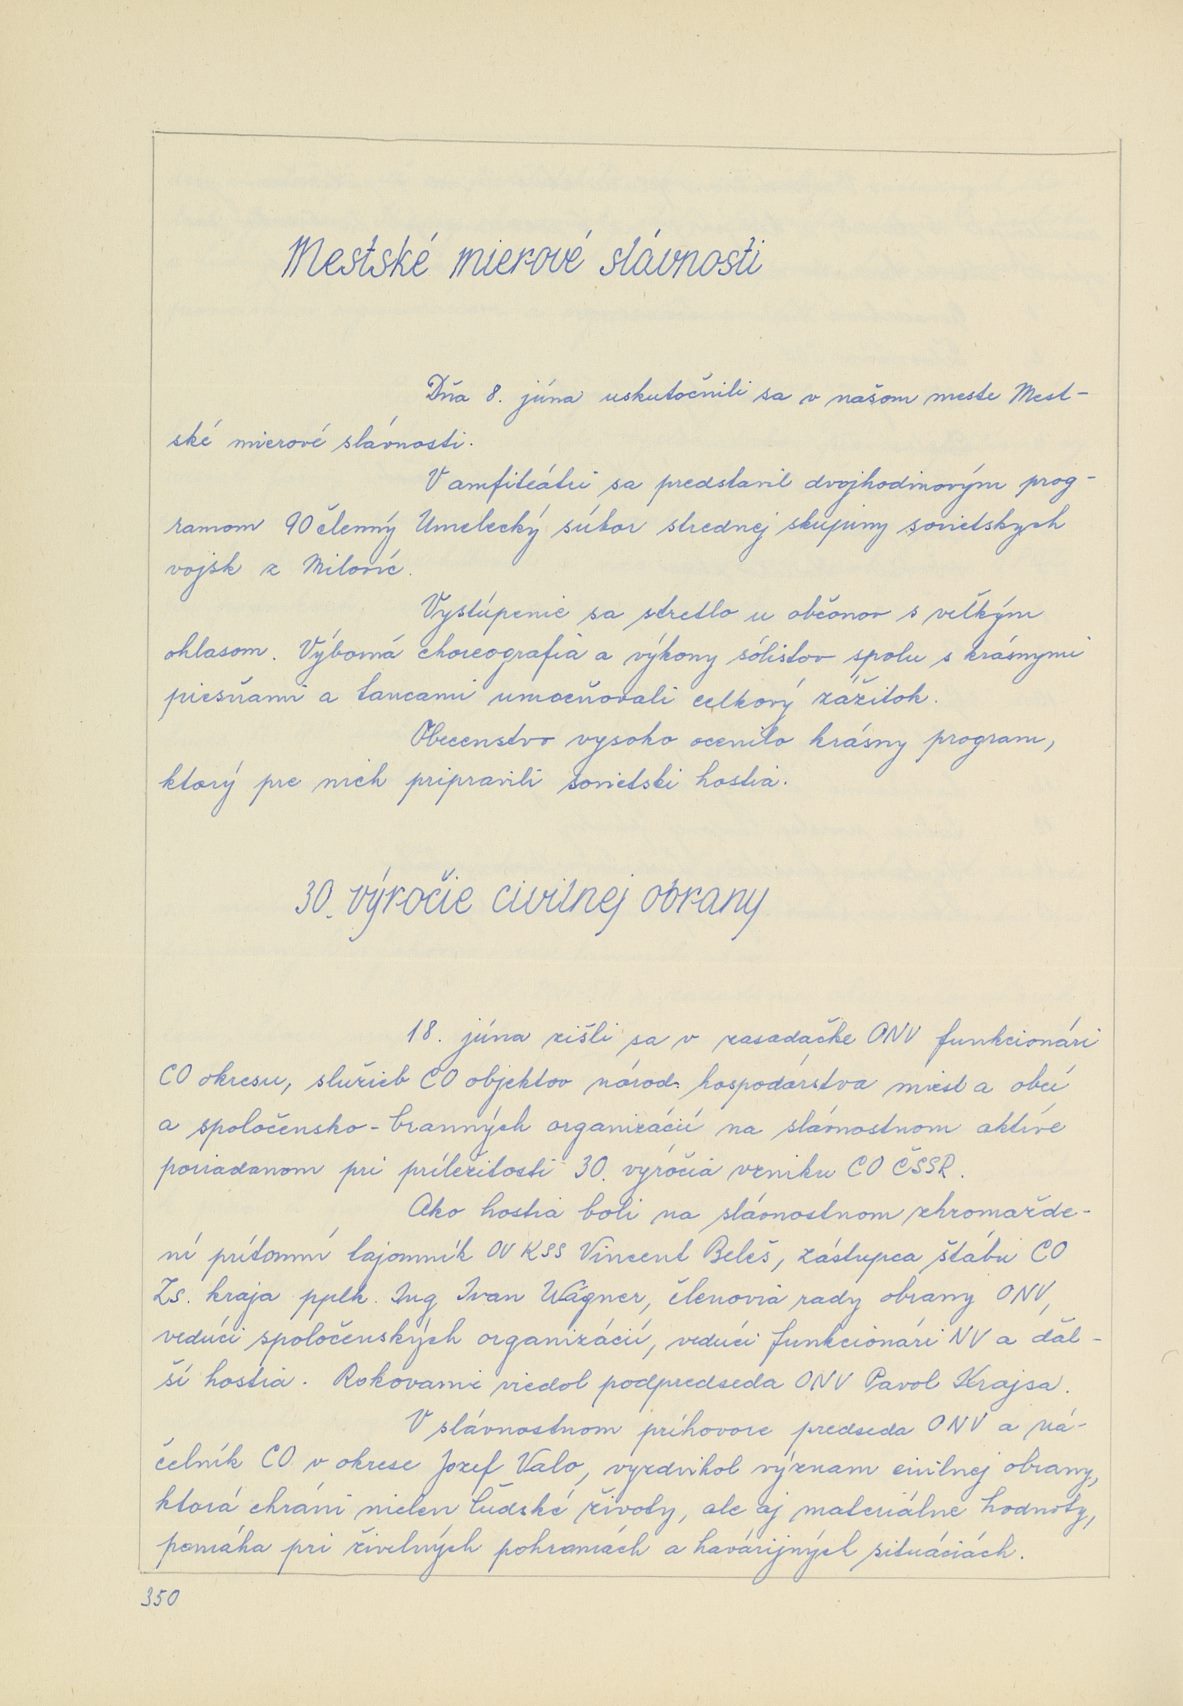 Mestské mierové slávnosti
Dňa 8. júna uskutočnili sa v našom meste Mest-
ské mierové slávnosti.
V amfiteátri sa predstavil dvojhodinovým prog-
ramom 90 členný Umelecký súbor strednej skupiny sovietskych
vojsk z Milovíc.
Vystúpenie sa stretlo u občanov s veľkým
ohlasom. Výborná choreografia a výkony sólistov spolu s krásnymi
piesňami a tancami umocňovali celkový zážitok.
Obecenstvo vysoko ocenilo krásny program,
ktorý pre nich pripravili sovietski hostia.
30. výročie civilnej obrany
18. júna zišli sa v zasadačke ONV funkcionári
CO okresu, služieb CO objektov národ. hospodárstva miest a obcí
a spoločensko-branných organizácií na slávnostnom aktíve
poriadanom pri príležitosti 30. výročia vzniku CO ČSSR.
Ako hostia boli na slávnostnom zhromažde-
ní prítomní tajomník OV KSS Vincent Beleš, zástupca štábu CO
Zs. kraja pplk. Ing Ivan Wágner, členovia rady obrany ONV,
vedúci spoločenských organizácií, vedúci funkcionári NV a ďal-
ší hostia. Rokovanie viedol podpredseda ONV Pavol Krajsa.
V slávnostnom príhovore predseda ONV a ná-
čelník CO v okrese Jozef Valo, vyzdvihol význam civilnej obrany,
ktorá chráni nielen ľudské životy, ale aj materiálne hodnoty,
pomáha pri živelných pohromách a havárijných situáciách.
350